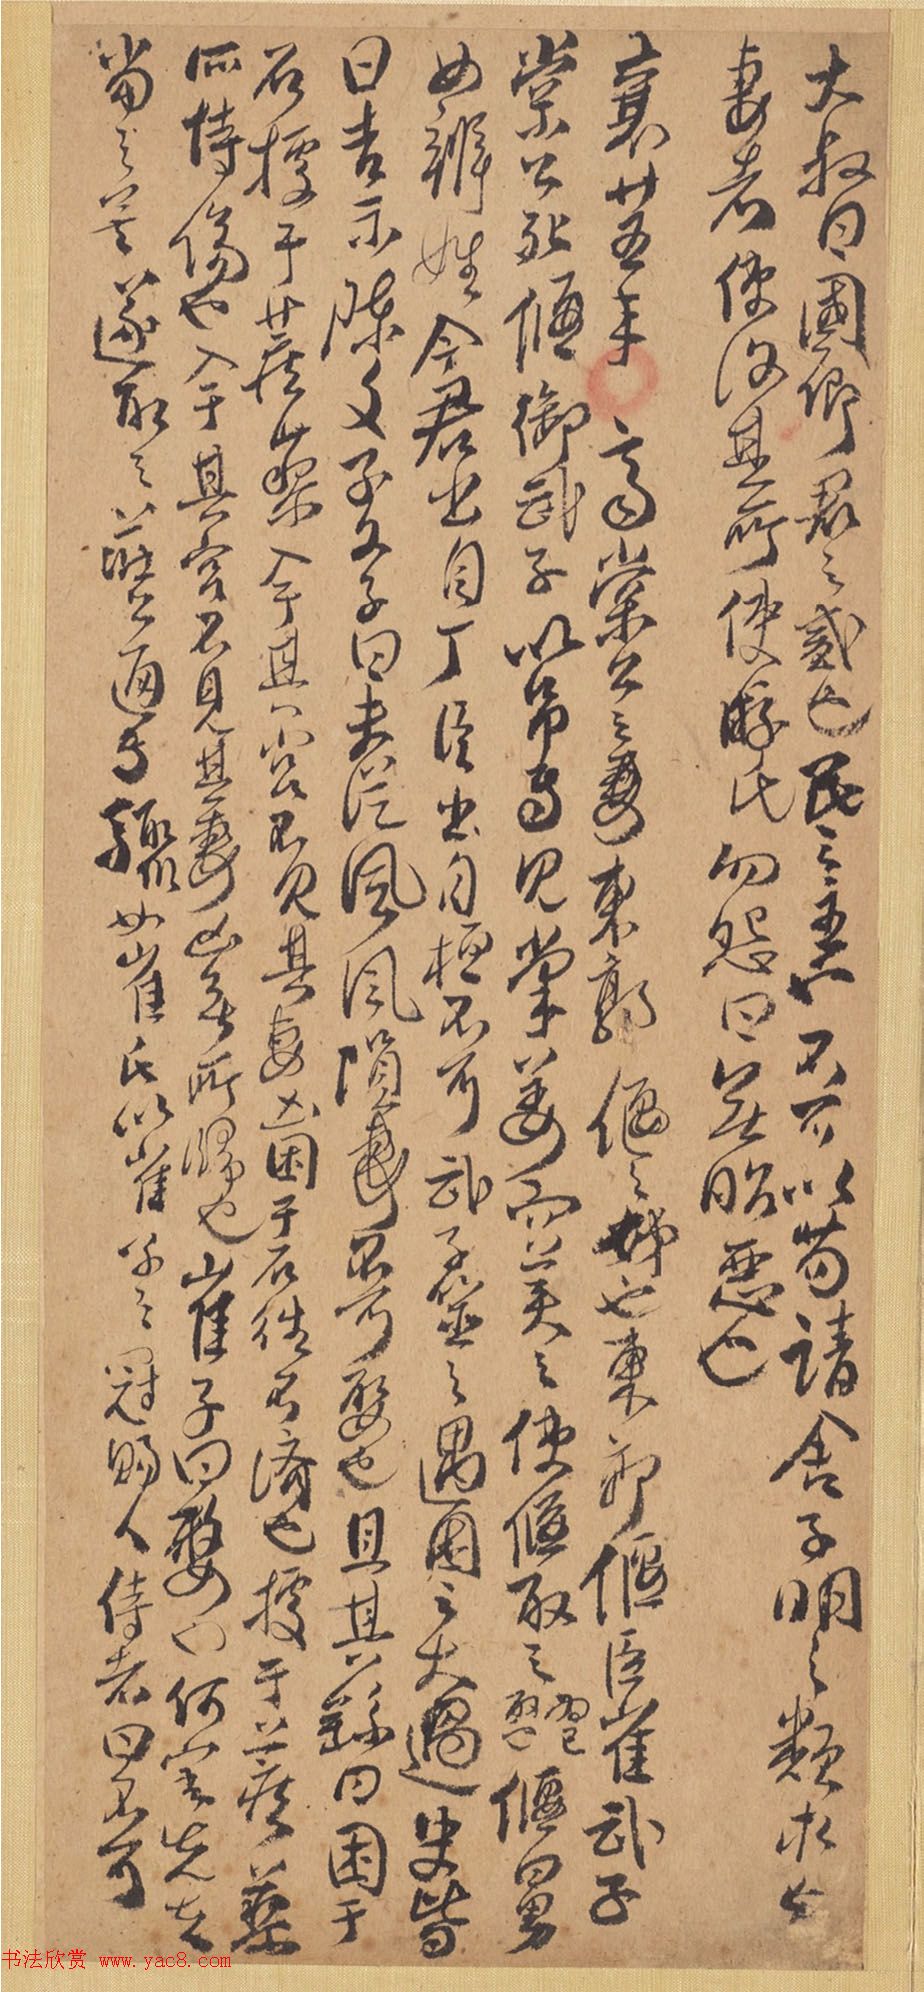 大叔曰國卿君之貳也民之主也不可以苟請舍子明之類求亡
妻者使復其所使游氏勿怨曰無昭惡也
襄廿五年 齊棠公之妻東郭偃之姊也東郭偃臣崔武子
棠公死偃御武子以弔焉見棠姜而美之使偃取之偃曰男
女辨姓今君出自丁臣出自桓不可武子筮之遇困之大過史皆
曰吉示陳文子文子曰夫從風風隕妻不可娶也且其繇曰困于
石據于蒺藜入于其宮不見其妻凶困于石往不濟也據于蒺藜
所恃傷也入于其宮不見其妻凶無所歸也崔子曰嫠也何害先夫
當之矣遂取之莊公通焉驟如崔氏以崔子之冠賜人侍者曰不可
书法欣赏 www.yac8.com